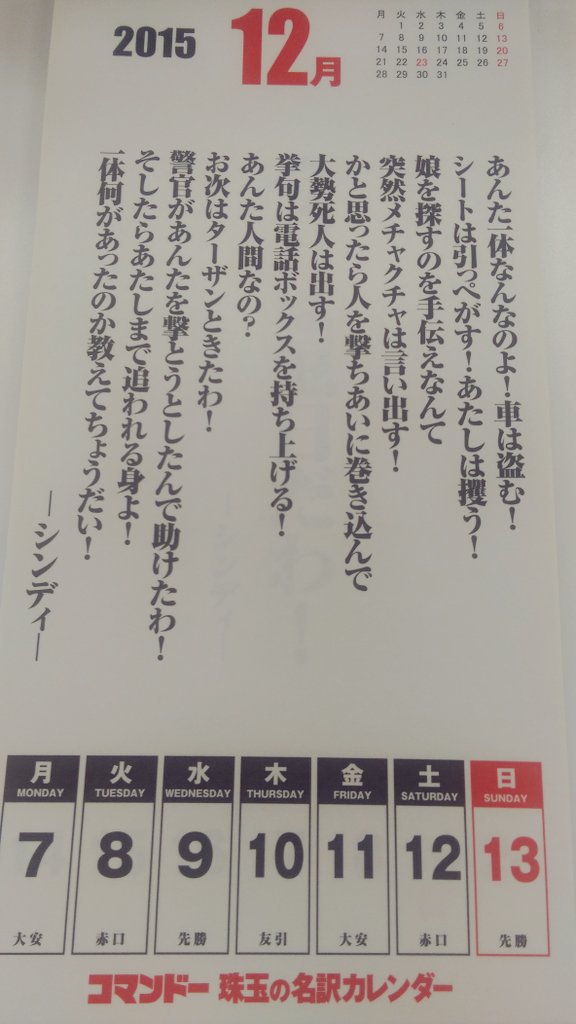 2015
12月
月 火 水 木 金 土 日
1 2 3 4 5 6
7 8 9 10 11 12 13
14 15 16 17 18 19 20
21 22 23 24 25 26 27
28 29 30 31
あんた一体なんなのよ！車は盗む！
シートは引っぺがす！あたしは攫う！
娘を探すのを手伝えなんて
突然メチャクチャは言い出す！
かと思ったら人を撃ちあいに巻き込んで
大勢死人は出す！
挙句は電話ボックスを持ち上げる！
あんた人間なの？
お次はターザンときたわ！
警官があんたを撃とうとしたんで助けたわ！
そしたらあたしまで追われる身よ！
一体何があったのか教えてちょうだい！
―シンディ―
月 火 水 木 金 土 日
MONDAY TUESDAY WEDNESDAY THURSDAY FRIDAY SATURDAY SUNDAY
7 8 9 10 11 12 13
大安 赤口 先勝 友引 大安 赤口 先勝
コマンドー 珠玉の名訳カレンダー